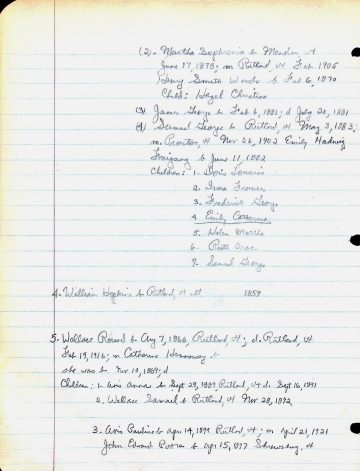 (2) - Martha Sophronia b Mendon, Vt
June 17, 1878; m Rutland, Vt Feb 1905
Henry Smith b Feb 6, 1870
Child: Hazel Christine
(3) James George b Feb 6, 1881; d July 20, 1881
(4) Samuel George b Rutland, Vt May 3, 1883;
m. Proctor, Vt Nov 26, 1902 Emily Hedwig
b June 11, 1882
Children: 1. Doris Louise
2. Irma Frances
3. Frederick George
4. Emily Catherine
5. Helen
6. Ruth
7. Samuel George
4. William Hopkins b Rutland, Vt 1857
5. Wallace Round b Aug 7, 1866, Rutland, Vt; d. Rutland, Vt
Feb 19, 1916; m Catherine Hennessey b
she was b. Nov 10, 1869; d
Children: 1. Avis Anna b Sept 29, 1889 Rutland, Vt d. Sept 16, 1891
2. Wallace Samuel b Rutland, Vt Nov 28, 1892
3. Avis Pauline b Apr 14, 1899 Rutland, Vt; m April 21, 1921
John Edward b Apr 15, 1897 Shrewsbury, Vt